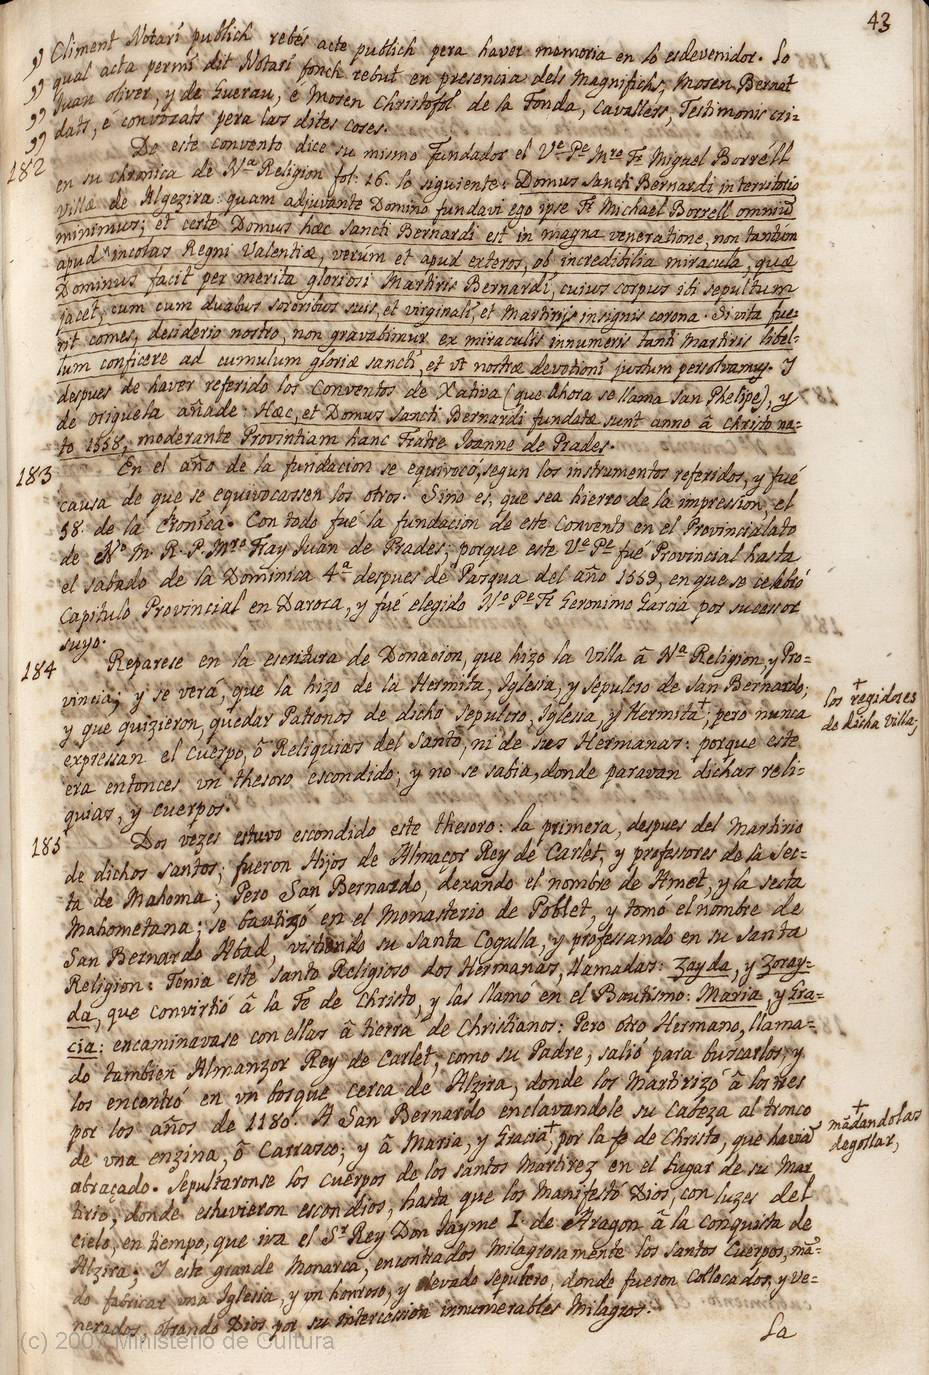 43
,, Climent Notari publich rebés acte publich pera haver memoria en lo esdevenidor. Lo
,, qual acta permi dit Notari fonch rebut en presencia dels Magnifichs, Mosen Bernat
,, Juan oliver, y de Guerau, e Mosen Christofol de la Tonda, Cavallers, Testimonis cri=
,, dats, é convocats pera las dites coses.
182 De este convento dice su mismo Fundador el Ve. Pe. Mro. Fr. Miguel Borréll
en su chronica de Na. Religion fol. 26. lo siguiente: Domus Sancti Bernardi in territorio
villæ de Algezira: quam adjuvante Domino fundavi ego ipse Fr. Michael Borrell omniũ
minimus; et certe Domus hæc Sancti Bernardi est in magna veneratione, non tantùm
apud incolas Regni Valentiæ, verúm et apud exteros, ob incredibilia miracula, quæ
Dominus facit per merita gloriosi Martiris Bernardi, cuius corpus ibi sepultum
jacet, cum cum duabus sororibus suis, et virginali, et Martirijs insignis corona. Si vita fue=
rit comes, desiderio nostro, non gravabimur ex miraculis innumeris tanti Martiris libel=
lum conficere ad cumulum gloriæ sancti, et vt nostræ devotioni justum persolvamus. Y
despues de haver referido los Conventos de Xativa (que Ahora se llama San Phelipe), y
de origuela añade: Hæc, et Domus Sancti Bernardi fundatæ sunt anno â Christo na=
to 1558, moderante Provintiam hanc Fratre Joanne de Prades.
183 En el año de la fundacion se equivocó, segun los instrumentos referidos, y fué
causa de que se equivocassen los otros. Sino es, que sea hierro de la impression, el
58. de la Cronica. Con todo fué la fundacion de este Convento en el Provincialato
de No. M. R. P. Mro. Fray Juan de Prades; porque este Ve. Pe. fué Provincial hasta
el sabado de la Dominica 4a. despues de Pasqua del año 1559, en que se celebró
Capitulo Provincial en Daroca, y fué elegido No. Pe. Fr. Geronimo Garcia por sucessor
suyo.
184 Reparese en la escritura de Donacion, que hizo la Villa â Na. Religion, y Pro=
vincia; y se verá, que la hizo de la Hermita, Iglesia, y sepulcro de San Bernardo;
y que quizieron, quedar Patronos de dicho sepulcro, Iglesia, y Hermita+; pero nunca
+ los regidores
de dicha villa;
expressan el Cuerpo, ô Reliquias del Santo, ni de sus Hermanas: porque este
era entonces vn thesoro escondido; y no se sabia, donde paravan dichas reli=
quias, y cuerpos.
185 Dos vezes estuvo escondido este thesoro: La primera, despues del Martirio
de dichos santos; fueron Hijos de Almaçor Rey de Carlet, y professores de la Sec=
ta de Mahoma; Pero San Bernardo, dexando el nombre de Amet, y la secta
Mahometana; se bautizó en el Monasterio de Poblet, y tomó el nombre de
San Bernardo Abad, vistiendo su Santa Cogulla, y professando en su santa
Religion: Tenia este santo Religioso dos Hermanas, llamadas: Zayda, y Zoray=
da, que convirtió â la Fe de Christo, y las llamó en el Bautismo: Maria, y Gra=
cia: encaminavase con ellas â tierra de Christianos: Pero otro Hermano, llama=
do tambien Almanzor Rey de Carlet, como su Padre, salió para buscarlos, y
los encontró en vn bosque cerca de Alzira, donde los Martirizó â los tres
por los años de 1180. A San Bernardo enclavandole su Cabeza al tronco
de vna enzina, ô Carrasco; y â Maria, y Gracia+, por la fe de Christo, que haviã
+ mãdandolas
degollar,
abraçado. Sepultaronse los Cuerpos de los santos Martirez en el Lugar de su Mar
tirio, donde estuvieron escondios, hasta que los Manifestó Dios, con luzes del
cielo, en tiempo, que iva el Sr. Rey Don Jayme I. de Aragon â la conquista de
Alzira; Y este grande Monarca, encontrados Milagrosamente los santos Cuerpos, mã=
do fabricar vna Iglesia, y vn honroso, y elevado sepulcro, donde fueron collocados, y ve=
nerados, obrando Dios por su intercession innumerables Milagros.
La
(c) 2007 Ministerio de Cultura